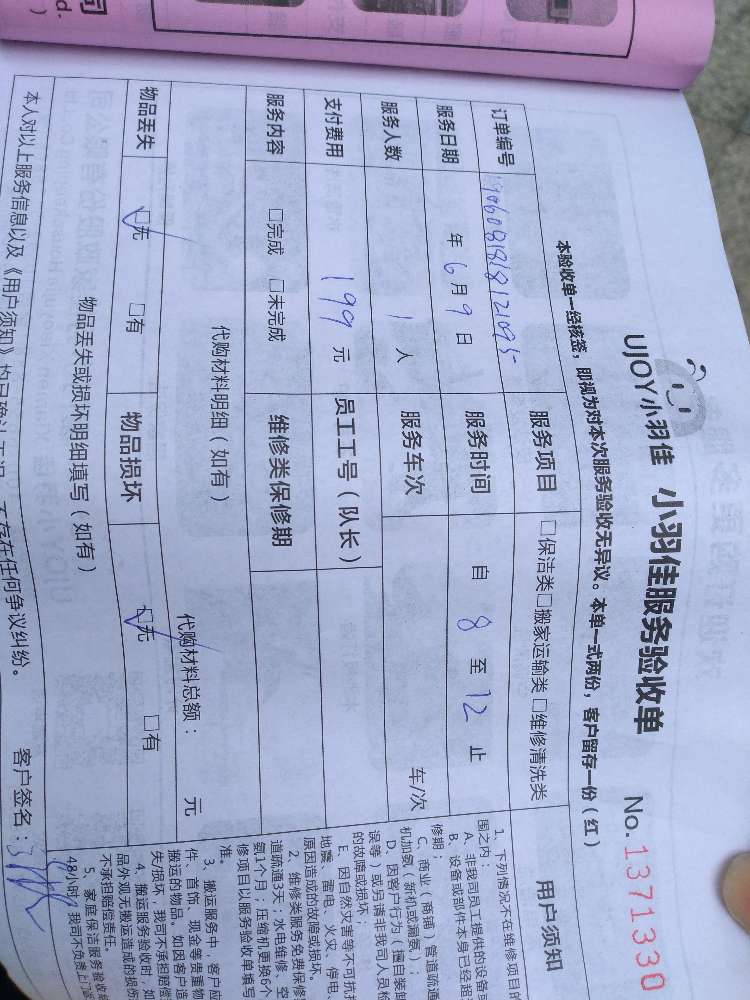 UJOY小羽佳 小羽佳服务验收单 No.1371330
本验收单一经核签，即视为对本次服务验收无异议。本单一式两份，客户留存一份（红）
订单编号 服务项目 □保洁类□搬家运输类□维修清洗类
服务日期 年6月9日 服务时间 自8至12止
服务人数 1人 服务车次 车/次
支付费用 199元 员工工号（队长）
服务内容 □完成 □未完成 维修类保修期
代购材料明细（如有） 代购材料总额： 元
物品丢失 ☑无 □有 物品损坏 ☑无 □有
物品丢失或损坏明细填写（如有）
本人对以上服务信息以及《用户须知》均已确认无误，不存在任何争议纠纷。 客户签名：
用户须知
1、下列情况不在维修项目的
围之内：
A、非我司员工提供的设备或
B、设备或部件本身已经超
修期；
C、商业（商铺）管道疏通
机加氨（新机或漏氨）；
D、因客户行为（擅自装卸
误等）或另请非我司人员检
的故障或损坏；
E、因自然灾害等不可抗拒
地震、雷电、火灾、停电、
原因造成的故障或损坏。
2、维修类服务免费保修
道疏通3天；水电维修、空
氨1个月；压缩机更换6个
修项目以服务验收单填写
准。
3、搬运服务中，客户应
件、首饰、现金等贵重物
搬运的物品。如因客户造
失/损坏，我司不承担赔偿
4、搬运服务验收时，如
品外观无搬运造成的损伤
不承担赔偿责任。
5、家庭保洁服务验收
48小时，我司不负责上门返